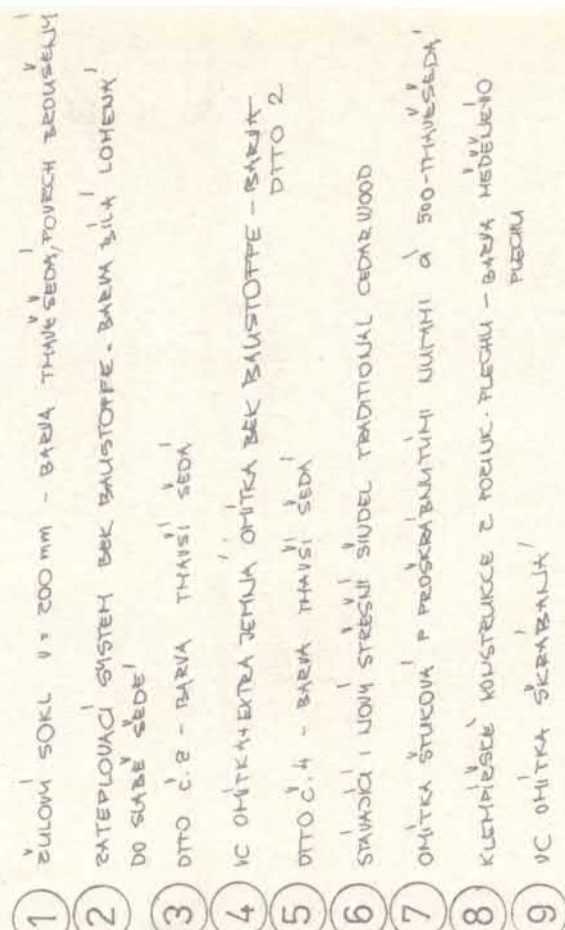 1 ŽULOVÝ SOKL V = 200 mm - BARVA TMAVĚ ŠEDÁ, POVRCH BROUŠENÝ
2 ZATEPLOVACÍ SYSTEM BEK BAUSTOFFE - BARVA BÍLÁ LOMENÁ
DO SLABĚ ŠEDÉ
3 DTTO Č.2 - BARVA TMAVŠÍ ŠEDÁ
4 VC OMÍTKA + EXTRA JEMNÁ OMÍTKA BEK BAUSTOFFE - BARVA
DTTO 2
5 DTTO Č.4 - BARVA TMAVŠÍ ŠEDÁ
6 STÁVAJÍCÍ I NOVÝ STŘEŠNÍ ŠINDEL TRADITIONAL CEDAR WOOD
7 OMÍTKA ŠTUKOVÁ P PROŠKRÁBNUTÝMI NUTMI Á 500 - TMAVĚ ŠEDÁ
8 KLEMPÍŘSKÉ KONSTRUKCE Z POZINK. PLECHU - BARVA MĚDĚNÉHO
PLECHU
9 VC OMÍTKA ŠKRÁBANÁ